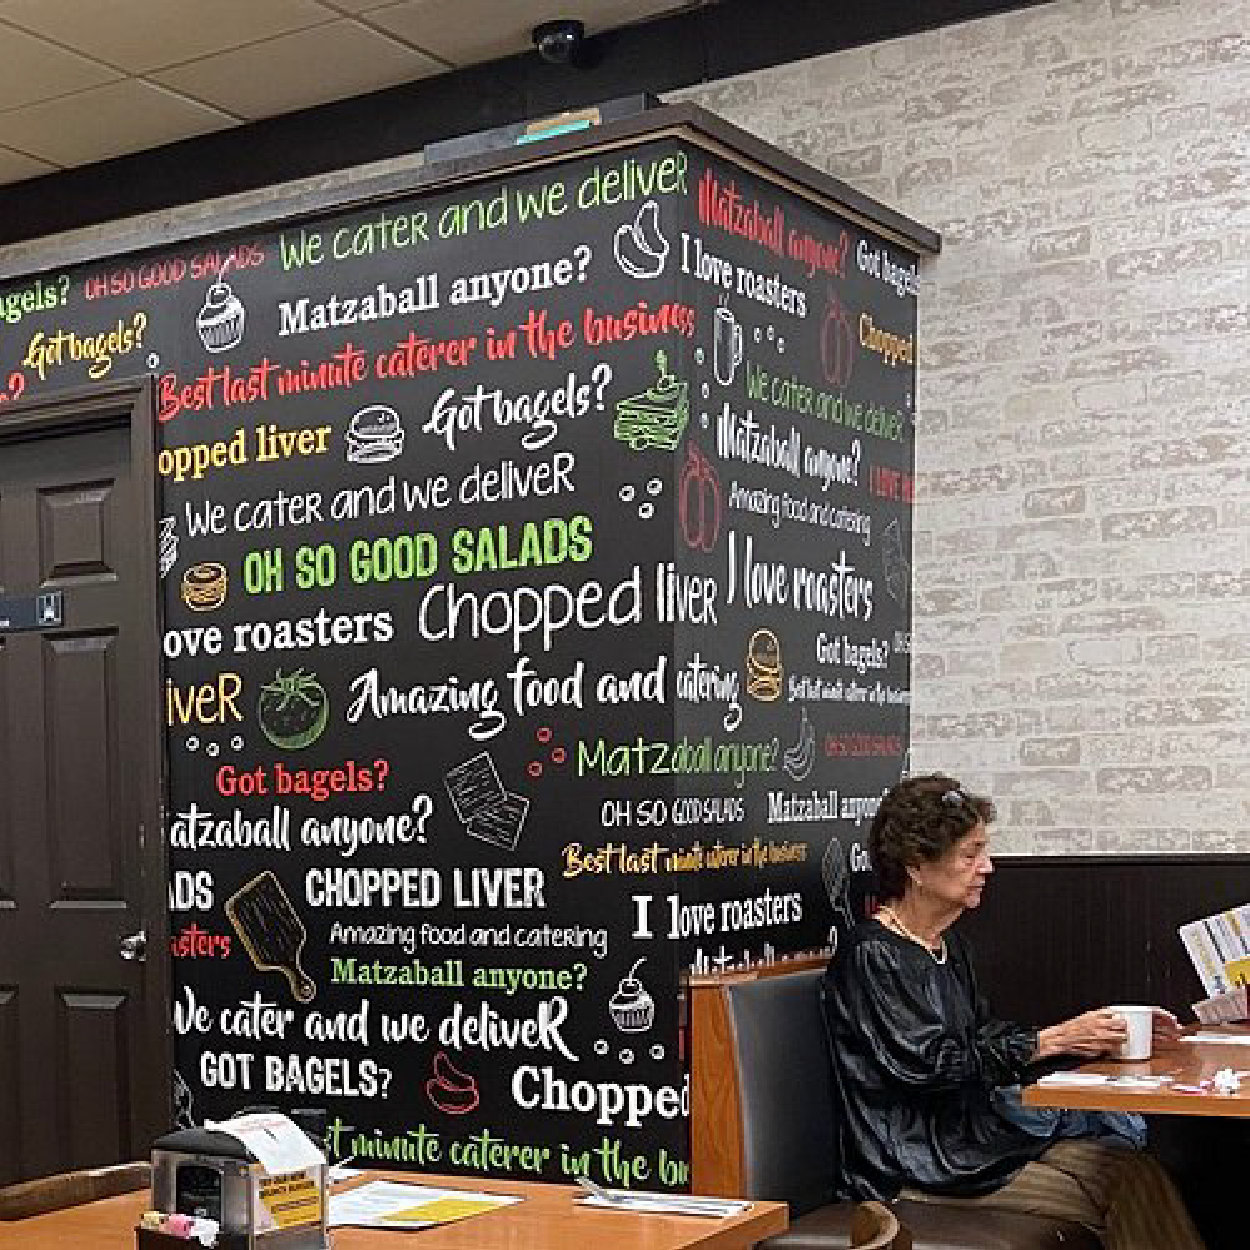 agels?
OH SO GOOD SALADS
We cateR and we deliveR
Got bagels?
Matzaball anyone?
Best last minute caterer in the business
opped liver
Got bagels?
We cateR and we deliveR
OH SO GOOD SALADS
ove roasters
Chopped liveR
iveR
Amazing food and catering
Got bagels?
Matzaball anyone?
atzaball anyone?
OH SO GOOD SALADS
Best last minute caterer in the business
ADS
CHOPPED LIVER
I love roasters
asters
Amazing food and cateRing
Matzaball anyone?
We cater and we deliveR
GOT BAGELS?
Chopped
t minute caterer in the bu
Matzaball anyone?
Got bagels
I love roasters
Chopped
We cater and we deliveR
Matzaball anyone?
I LOVE
Amazing food and catering
I love roasters
Got bagels?
Best last minute caterer in the business
OH SO GOOD SALADS
Matzaball anyone
Go